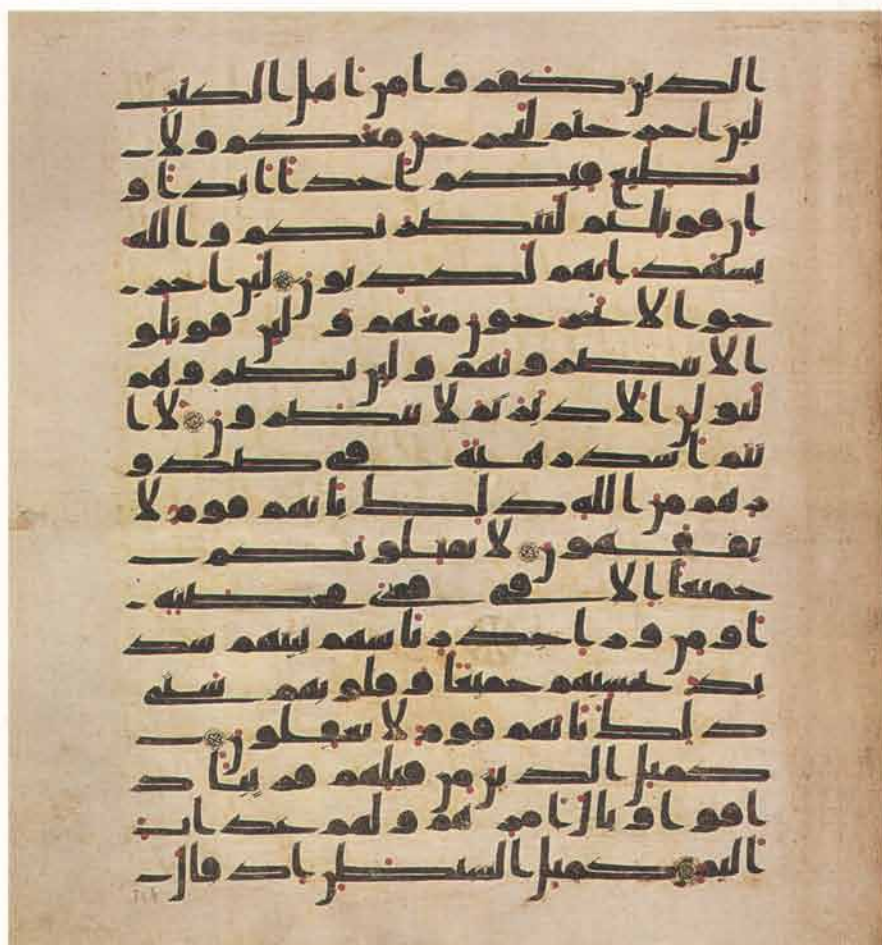 الذين كفروا من اهل الكتب
لئن اخرجتم لنخرجن معكم ولا
نطيع فيكم احدا ابدا و
ان قوتلتم لننصرنكم والله
يشهد انهم لكذبون لئن اخر
جوا لا يخرجون معهم ولئن قوتلو
ا لا ينصرونهم ولئن نصروهم
ليولن الادبر ثم لا ينصرون لا ا
نتم اشد رهبة في صدور
هم من الله ذلك بانهم قوم لا
يفقهون لا يقتلونكم
جميعا الا في قرى محصنة
او من ورا جدر باسهم بينهم شد
يد تحسبهم جميعا وقلوبهم شتى
ذلك بانهم قوم لا يعقلون
كمثل الذين من قبلهم قريبا ذ
اقوا وبال امرهم ولهم عذاب
اليم كمثل الشيطن اذ قال